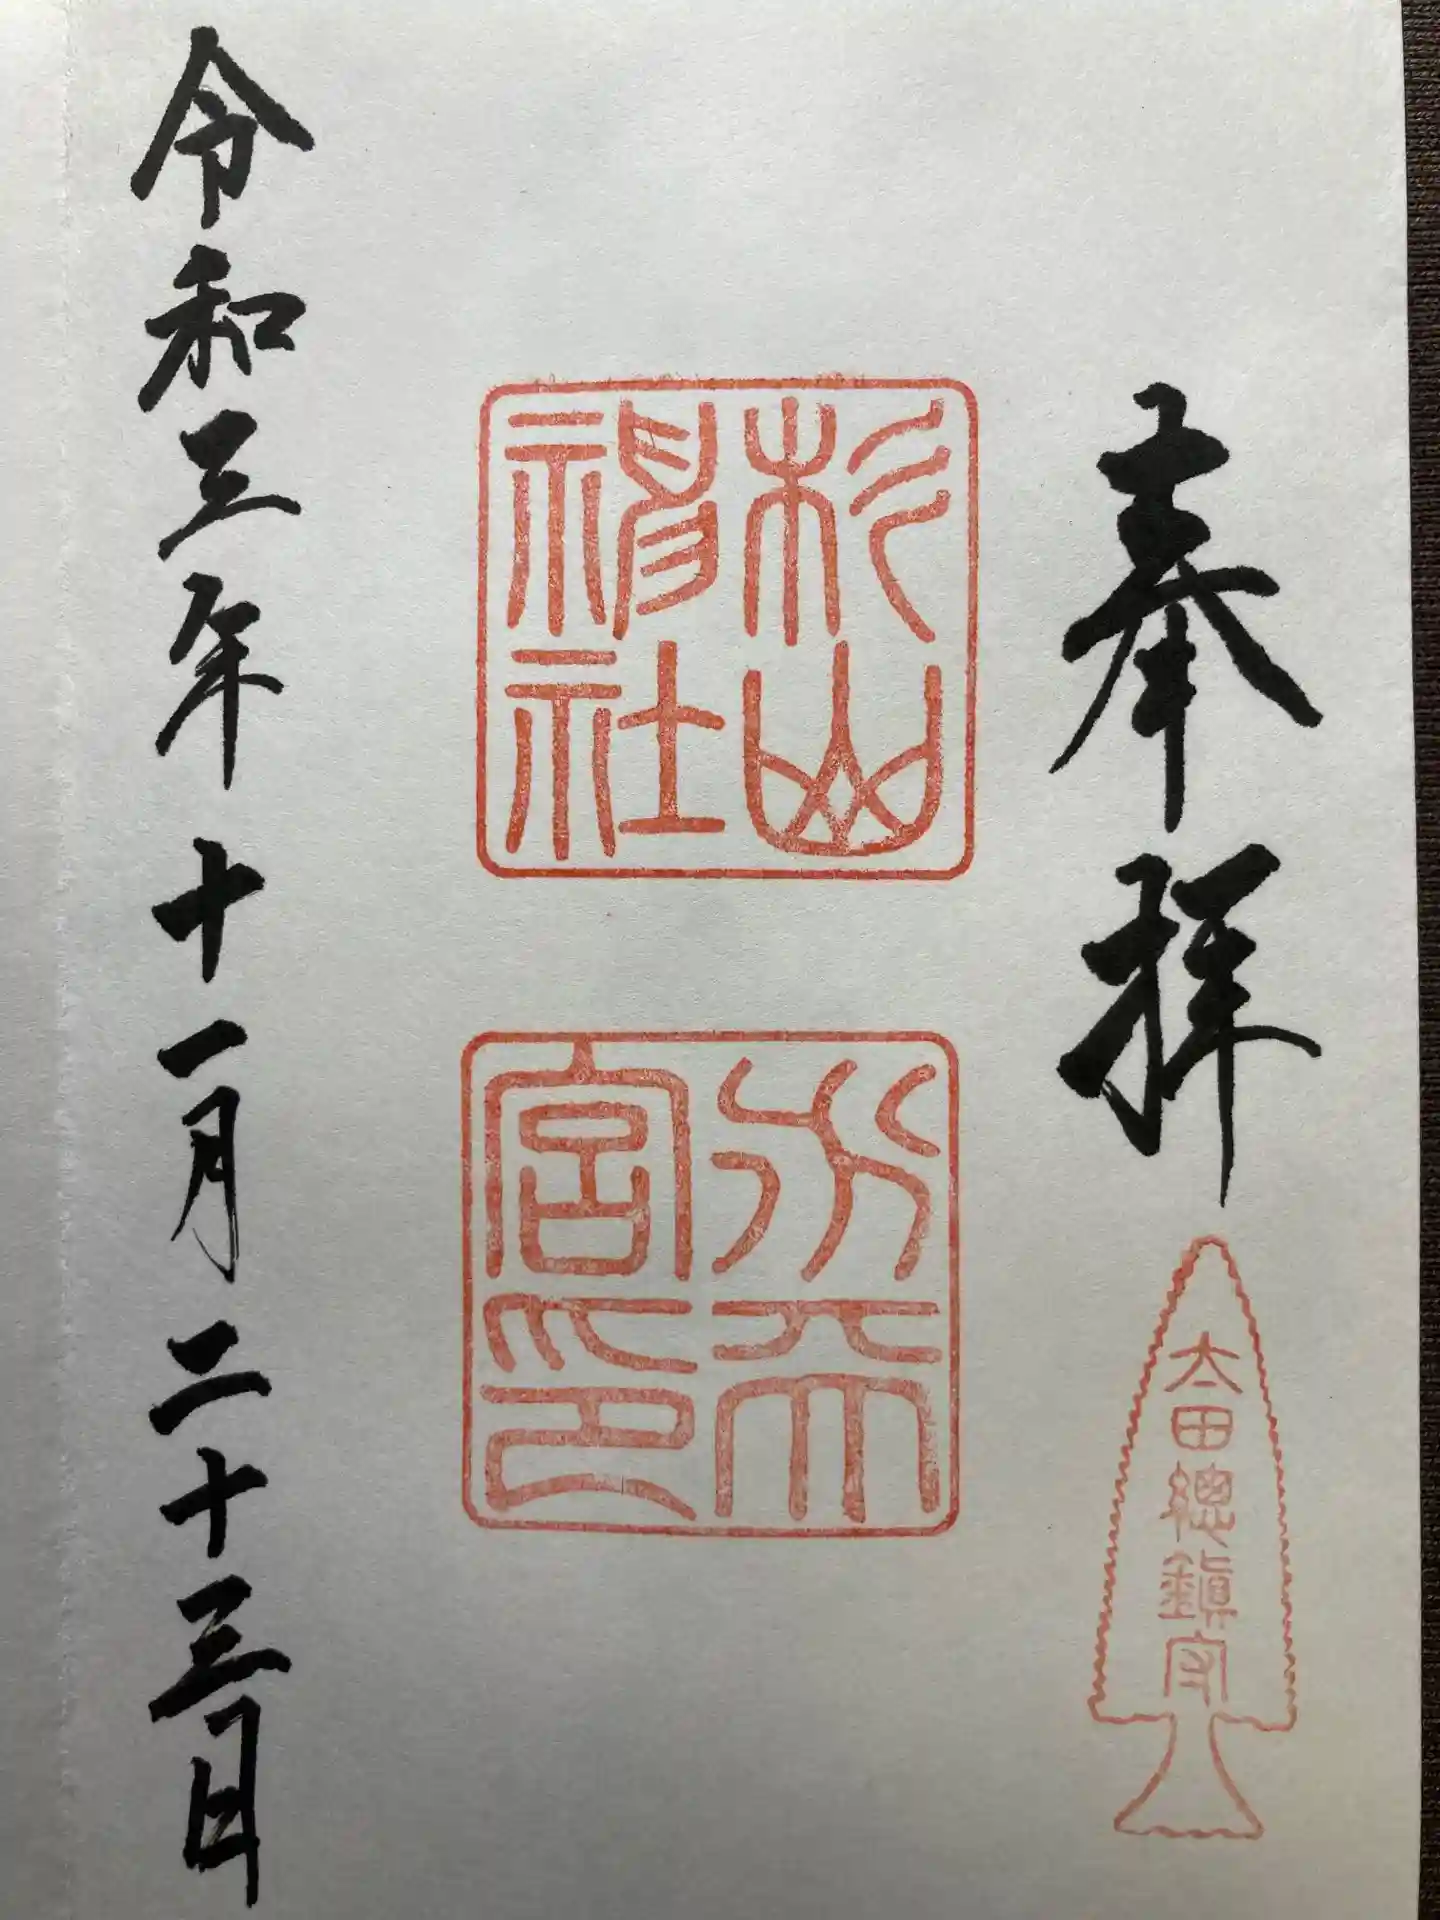 奉拝
太田總鎮守
杉山
神社
水天
宮印
令和三年十一月二十三日